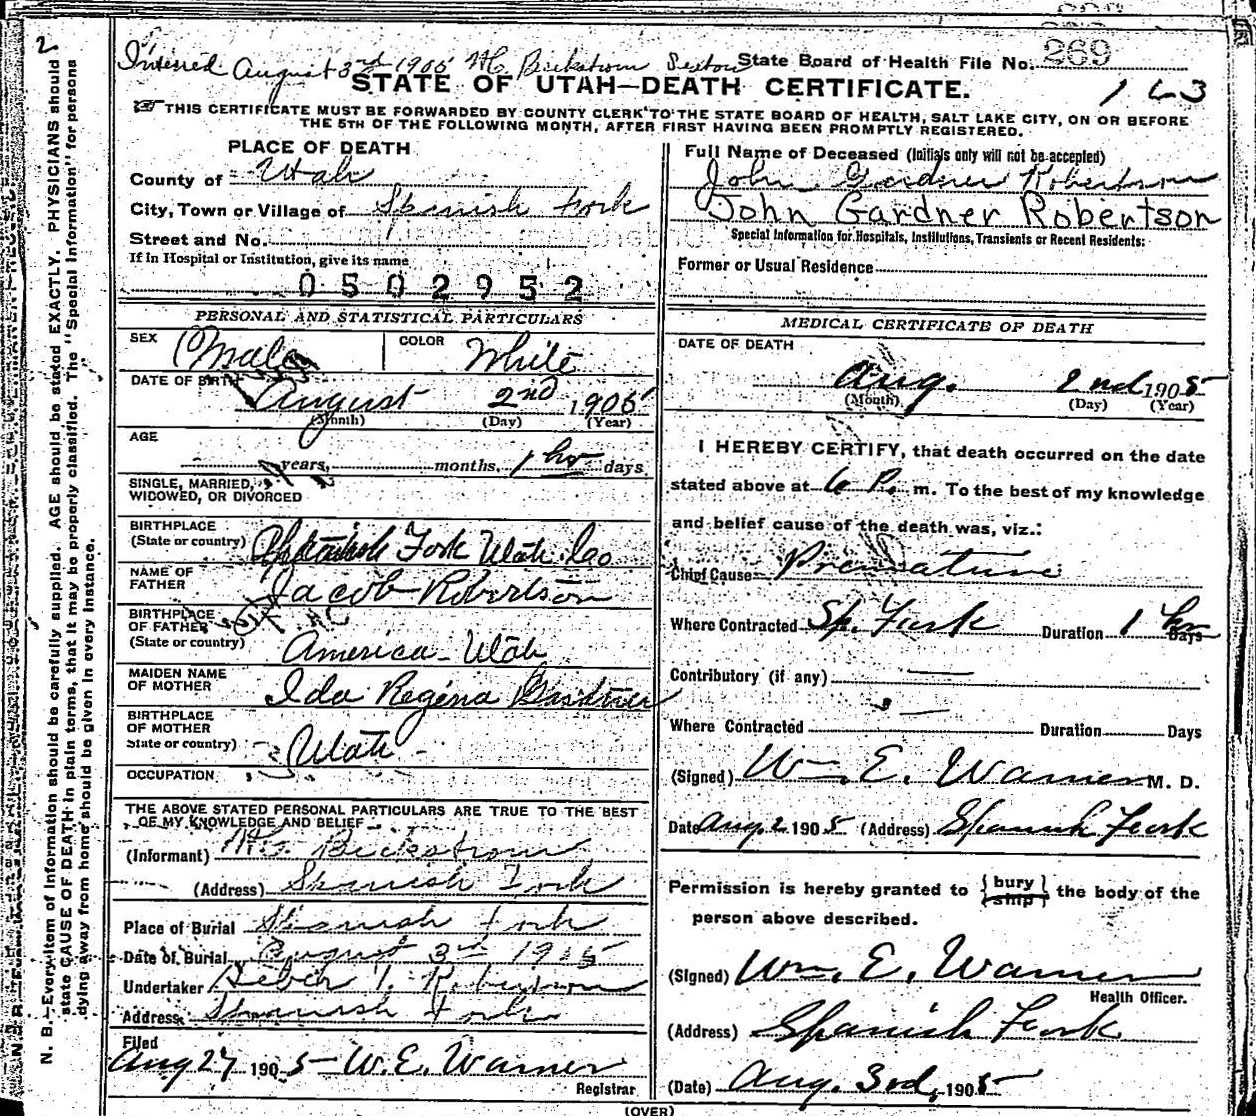 2.
Interred August 3rd 1905 Sexton State Board of Health File No. 269
STATE OF UTAH—DEATH CERTIFICATE.
163
THIS CERTIFICATE MUST BE FORWARDED BY COUNTY CLERK TO THE STATE BOARD OF HEALTH, SALT LAKE CITY, ON OR BEFORE
THE 5TH OF THE FOLLOWING MONTH, AFTER FIRST HAVING BEEN PROMPTLY REGISTERED.
PLACE OF DEATH
County of Utah
City, Town or Village of Spanish Fork
Street and No.
If in Hospital or Institution, give its name
0502952
PERSONAL AND STATISTICAL PARTICULARS
SEX Male COLOR White
DATE OF BIRTH
August 2nd 1905
(Month) (Day) (Year)
AGE
years, months, 1 hr days
SINGLE, MARRIED,
WIDOWED, OR DIVORCED
BIRTHPLACE
(State or country) Spanish Fork Utah Co
NAME OF
FATHER Jacob Robertson
BIRTHPLACE
OF FATHER
(State or country) America - Utah
MAIDEN NAME
OF MOTHER Ida Regena Gardner
BIRTHPLACE
OF MOTHER
State or country) Utah -
OCCUPATION
THE ABOVE STATED PERSONAL PARTICULARS ARE TRUE TO THE BEST
OF MY KNOWLEDGE AND BELIEF
(Informant)
(Address) Spanish Fork
Place of Burial Spanish Fork
Date of Burial August 3rd 1905
Undertaker Heber T. Robertson
Address Spanish Fork
Filed
Aug 27 1905 - W. E. Warner
Registrar
Full Name of Deceased (Initials only will not be accepted)
John Gardner Robertson
John Gardner Robertson
Special Information for Hospitals, Institutions, Transients or Recent Residents:
Former or Usual Residence
MEDICAL CERTIFICATE OF DEATH
DATE OF DEATH
Aug. 2nd 1905
(Month) (Day) (Year)
I HEREBY CERTIFY, that death occurred on the date
stated above at 6 P. m. To the best of my knowledge
and belief cause of the death was, viz.:
Chief Cause Premature
Where Contracted Sp. Fork Duration 1 hr Days
Contributory (if any) —
Where Contracted — Duration Days
(Signed) Wm. E. Warner M. D.
Date Aug. 2 1905 (Address) Spanish Fork
Permission is hereby granted to {bury ship} the body of the
person above described.
(Signed) Wm. E. Warner
Health Officer.
(Address) Spanish Fork
(Date) Aug. 3rd, 1905
(OVER)
N. B.—Every item of Information should be carefully supplied. AGE should be stated EXACTLY. PHYSICIANS should
state CAUSE OF DEATH in plain terms, that it may be properly classified. The "Special Information" for persons
dying away from home should be given in every instance.